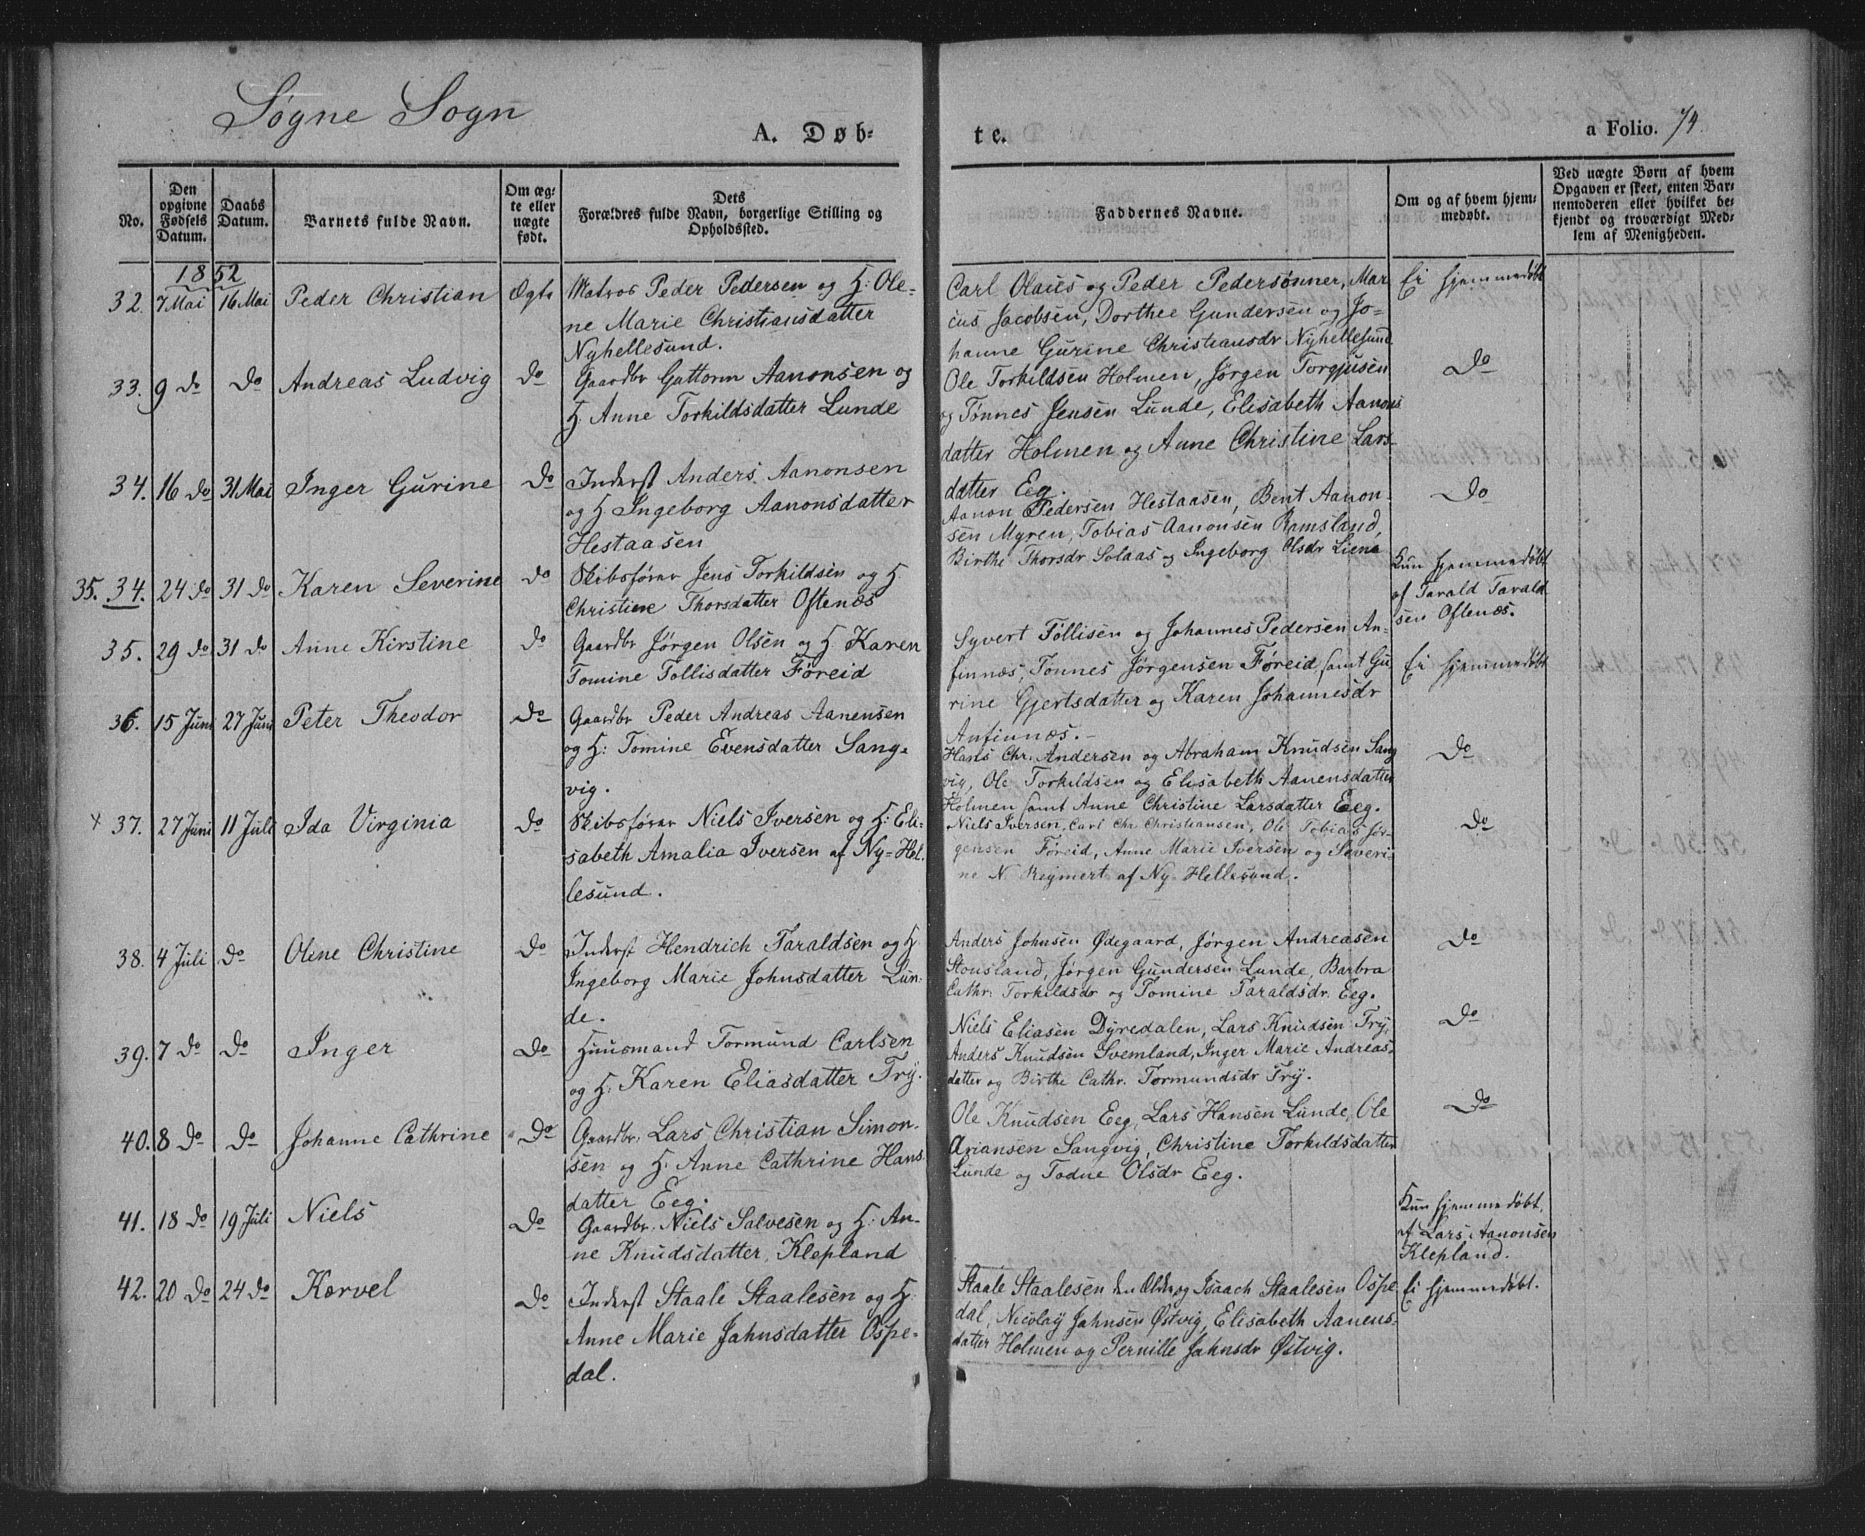 Søgne Sogn
A. Døb-
te.
a Folio. 74.
No.
Den opgivne Fødsels Datum.
Daabs Datum.
Barnets fulde Navn.
Om æg-
te eller
uægte
født.
Dets
Forældres fulde Navn, borgerlige Stilling og
Opholdssted.
Faddernes Navne.
Om og af hvem hjem-
medøbt.
Ved uægte Børn af hvem
Opgaven er skeet, enten Bar-
nemoderen eller hvilket be-
kjendt og troværdigt Med-
lem af Menigheden.
1852
32. 7 Mai 16 Mai Peder Christian Ægte Matros Peder Pedersen og H. Ole-
ne Marie Christiansdatter
Nyhellesund.
Carl Olaus og Peder Pedersønner, Mar
cus Jacobsen, Dorthee Gundersen og Jo-
hanne Gurine Christiansdr Nyhellesund
Ei hjemmedøbt
33. 9 do Do Andreas Ludvig Do Gaardbr Gattorm Aanonsen og
H. Anne Torkildsdatter Lunde
Ole Torkildsen Holmen, Jørgen Torgjusen
og Tønnes Jensen Lunde, Elisabeth Aanons
datter Holmen og Anne Christine Lars
datter Eeg.
Do
34. 16 do 31 Mai Inger Gurine Do Inderst Anders Aanonsen
og H Ingeborg Aanonsdatter
Hestaasen
Aanon Pedersen Hestaasen, Bent Aanon-
sen Myren, Tobias Aanonsen Ramsland,
Birthe Thorsdr Solaas og Ingeborg Olsdr Liene
Do
35. 34. 24 do 31 do Karen Severine do Skibsfører Jens Torkildsen og H.
Christine Thorsdatter Oftenæs
Kun hjemmedøbt
af Tarald Tarald
sen Oftenæs.
35. 29 do 31 do Anne Kirstine do Gaardbr Jørgen Olsen og H Karen
Tomine Tollisdatter Føreid
Syvert Tollisen og Johannes Pedersen An-
finnæs, Tønnes Jørgensen Føreid, samt Gu
rine Gjertsdatter og Karen Johannesdr
Anfinnæs.-
Ei hjemmedøbt
36. 15 Juni 27 Juni Peter Theodor Do Gaardbr Peder Andreas Aanensen
og H: Tomine Evensdatter Sang-
vig.
Hans Chr. Andersen og Abraham Knudsen Sang
vig, Ole Torkildsen og Elisabeth Aanensdatter
Holmen samt Anne Christine Larsdatter Eeg.
Do
x 37. 27 Juni 11 Juli Ida Virginia Do Skibsfører Niels Iversen og H: Eli-
sabeth Amalia Iversen af Ny-Hel-
lesund.
Niels Iversen, Carl Chr. Christiansen, Ole Tobias Jør-
gensen Føreid, Anne Marie Iversen og Severi-
ne N. Regmert af Ny Hellesund.
Do
38. 4 Juli do Oline Christine Do Inderst Hendrich Taraldsen og H.
Ingeborg Marie Johnsdatter Lun-
de.
Anders Johnsen Ødegaard, Jørgen Andreasen
Stousland, Jørgen Gundersen Lunde, Barbra
Cathr: Torkildsdr og Tomine Taraldsdr Eeg.
Do
39. 7 do Do Inger Do Huusmand Tormund Carlsen
og H. Karen Eliasdatter Try.
Niels Eliasen Dyredalen, Lars Knudsen Try,
Anders Knudsen Svemland, Inger Marie Andreas-
datter og Birthe Cathr. Tormundsdr Try.
Do
40. 8 do do Johanne Cathrine Do Gaardbr: Lars Christian Simon-
sen og H. Anne Cathrine Hans
datter Eeg.
Ole Knudsen Eeg, Lars Hansen Lunde, Ole
Ariansen Sangvig, Christine Torkildsdatter
Lunde og Todne Olsdr Eeg.
Do
41. 18 do 19 Juli Niels Do Gaardbr: Niels Salvesen og H: An-
ne Knudsdatter, Klepland
Kun hjemmedøbt,
af Lars Aanonsen
Klepland.
42. 20 do 24 do Korvel Do Inderst Staale Staalesen og H:
Anne Marie Jahnsdatter Ospe-
dal.
Staale Staalesen den Ældre og Isaach Staalesen Ospe
dal, Nicolay Jahnsen Østvig, Elisabeth Aanens-
datter Holmen og Pernille Jahnsdr Østvig.
Ei hjemmedøbt.